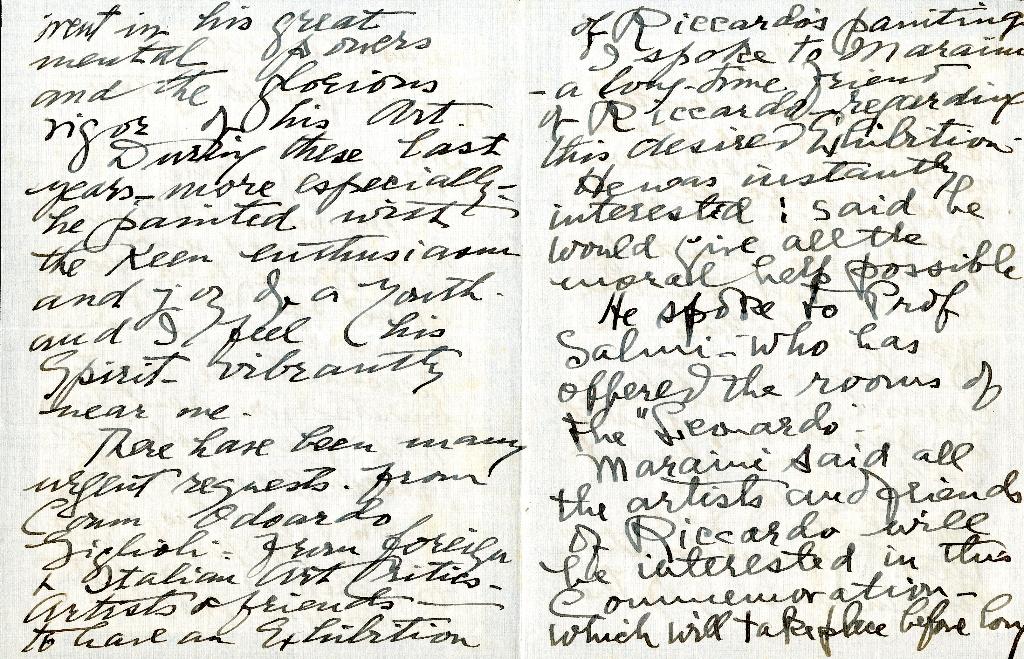 went in his great
mental powers
and the glorious
vigor of his Art.
During these last
years - more especially -
he painted with
the Keen enthusiasm
and joy of a Youth.
and I feel his
Spirit - vibrantly
near me -
There have been many
urgent requests. from
Comm Odoardo
Giglioli - from foreign
& Italian Art Critics -
Artists & friends -
to have an Exhibition
of Riccardo's painting
I spoke to Maraini
- a long-time friend
of Riccardo - regarding
this desired Exhibition -
He was instantly
interested ; said he
would give all the
moral help possible
He spoke to Prof
Salmi - who has
offered the rooms of
the "Leonardo".
Maraini said all
the artists and friends
of Riccardo will
be interested in this
Commemoration -
which will take place before long